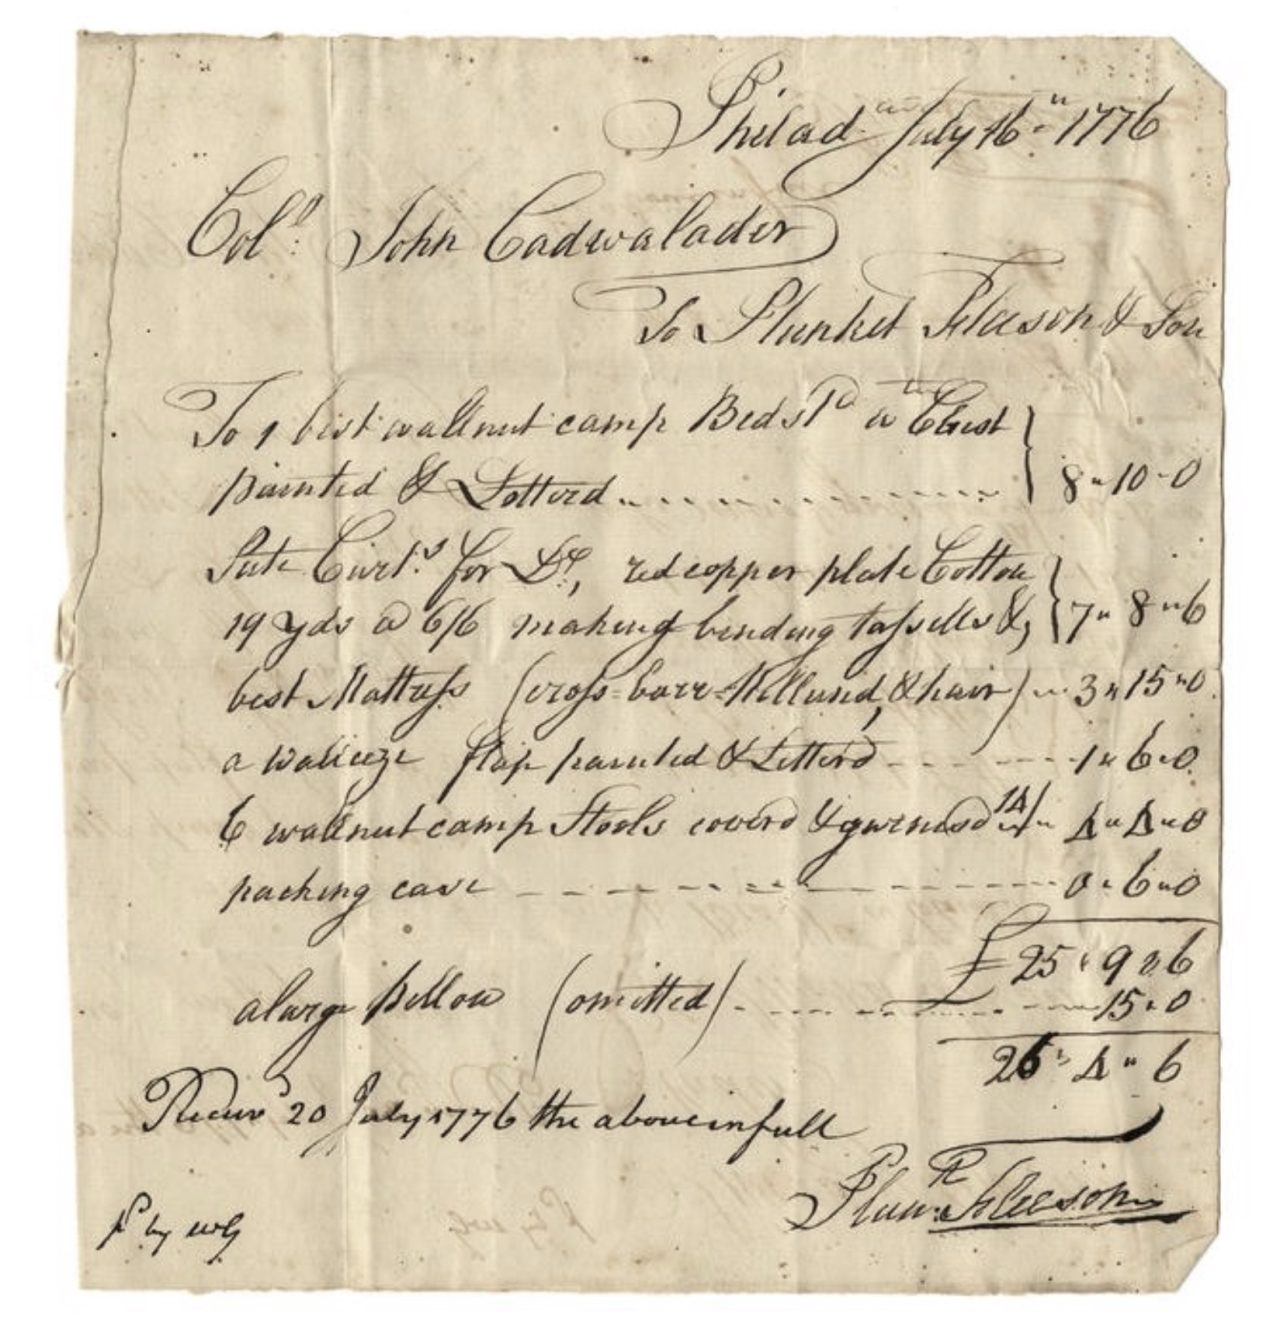 Philad.ᵃ July 16ᵗʰ 1776
Col.º John Cadwalader
To Plunket Fleeson & Son
To 1 best wallnut camp Bedstᵈ wᵗʰ Chest
painted & Letterd 8 " 10 - 0
Sute Curt.ˢ for Dº, red copper plate Cotton
19 yds @ 6/6 making binding tassells &, 7 " 8 " 6
best Mattrass (cross=barr= & hair) 3 " 15 " 0
a valieeze flap painted & Letterd 1 " 6 " 0
6 wallnut camp Stools coverd & 14/ 4 " 4 " 0
packing case 0 " 6 " 0
£ 25 " 9 " 6
a large Pillow (omitted) 15 " 0
26 " 4 " 6
Receivᵈ 20 July 1776 the above in full
Plunᵏᵗ Fleeson